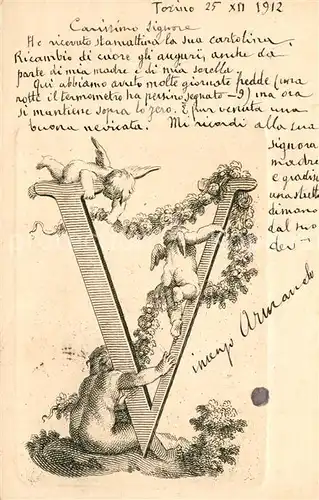 Torino 25 XII 1912
Carissimo Signore
Ho ricevuto stamattina la sua cartolina.
Ricambio di cuore gli auguri, anche da
parte di mia madre e di mia sorella.
Qui abbiamo avuto molte giornate fredde (una
notte il termometro ha persino segnato -9) ma ora
si mantiene sopra lo zero. È pur venuta una
buona nevicata. Mi ricordi alla sua
signora
madre
e gradisca
una stretta
di mano
dal suo
dev
Armando
V